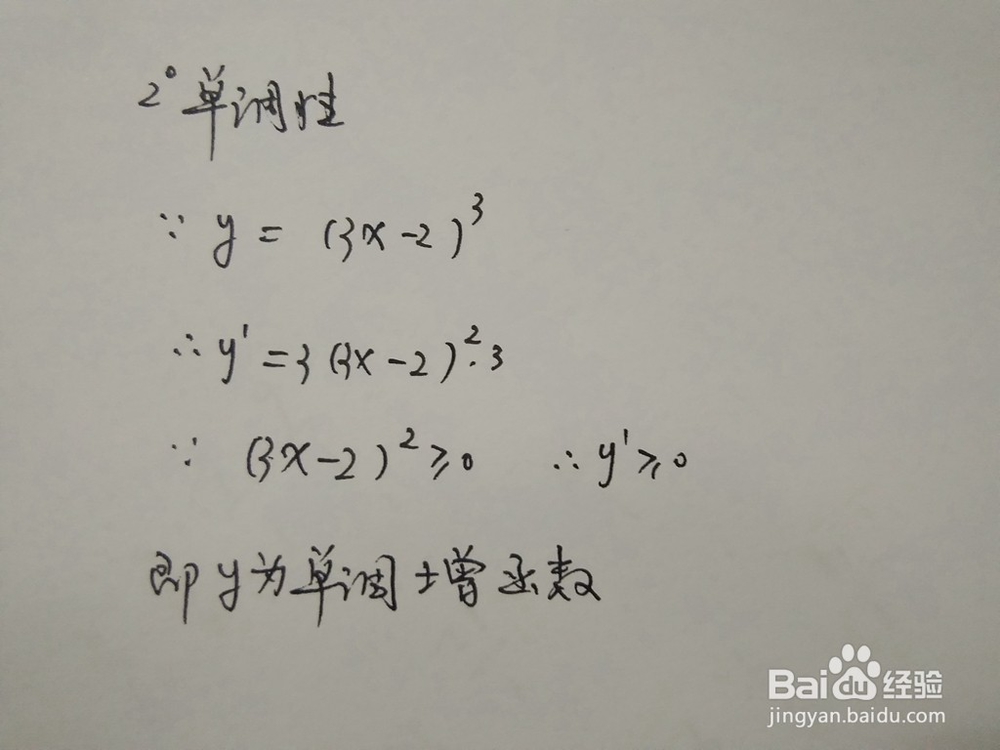 2° 单调性
∵ y = (3x-2)³
∴ y' = 3(3x-2)²·3
∵ (3x-2)² ≥ 0 ∴ y' ≥ 0
即y为单调增函数
Baidu经验
jingyan.baidu.com